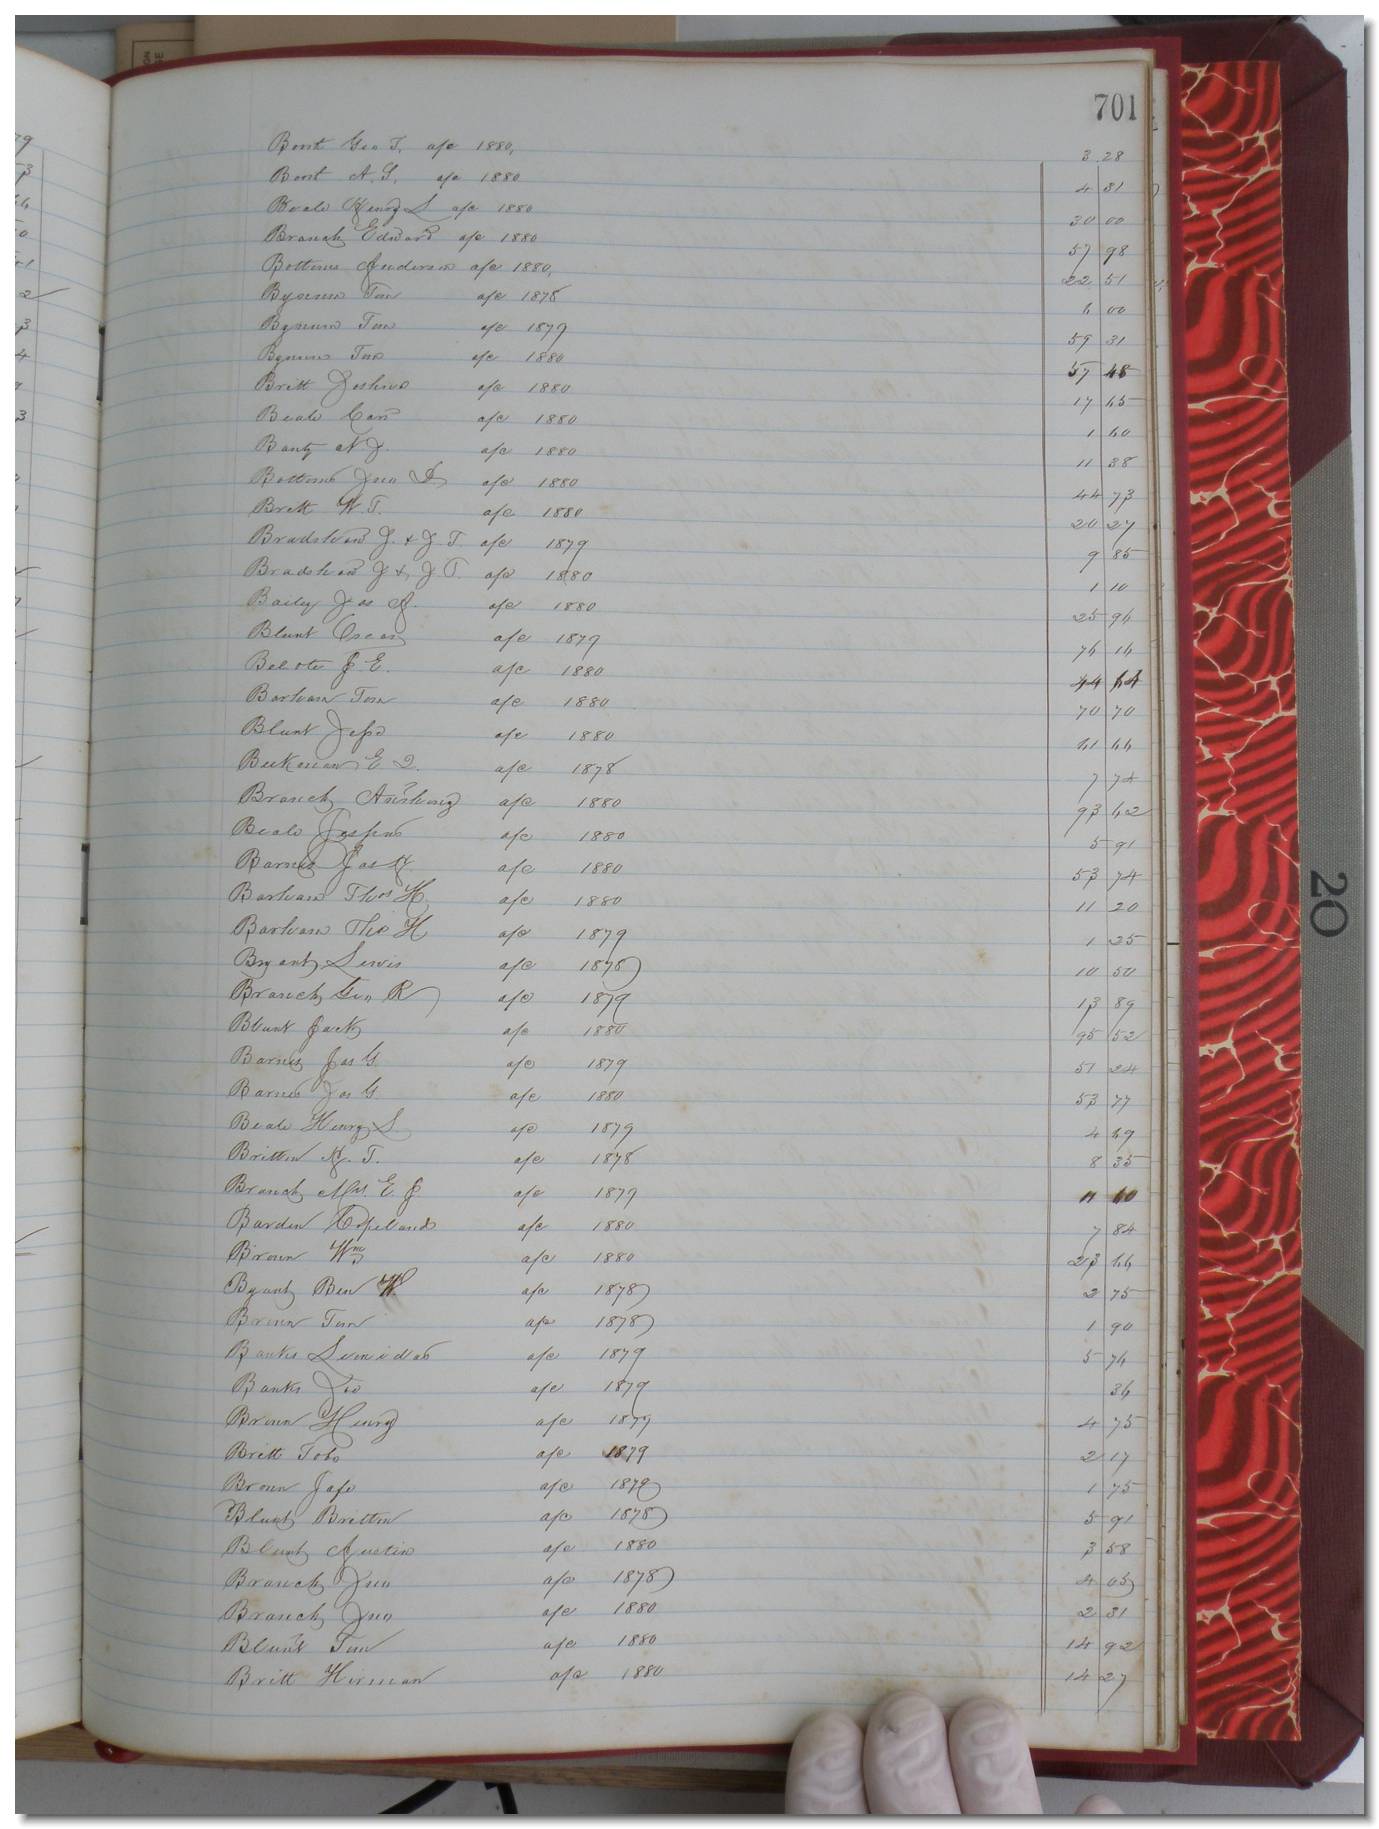 701
Borst Geo T. a/c 1880, 3 28
Borst A. G. a/c 1880 4 31
Beale Henry L a/c 1880 30 00
Branch Edward a/c 1880 57 98
Bottoms Anderson a/c 1880, 22 51
Bynum Tom a/c 1878 6 00
Bynum Tom a/c 1879 59 31
Bynum Tom a/c 1880 57 48
Britt Joshua a/c 1880 17 65
Beale a/c 1880 1 60
N J. a/c 1880 11 38
Bottoms Jno D a/c 1880 44 73
Britt W. T. a/c 1880 20 27
Bradshaw J. & J. T a/c 1879 9 85
Bradshaw J & J T. a/c 1880 1 10
Bailey Jas A. a/c 1880 25 96
Blunt Oscar a/c 1879 76 16
Belote J E. a/c 1880 44 64
Barham Tom a/c 1880 70 70
Blunt Jesse a/c 1880 61 66
Beekman E D. a/c 1878 7 74
Branch Armstrong a/c 1880 93 62
Beale a/c 1880 5 91
Barnes Jas A. a/c 1880 53 74
Barham Thos H a/c 1880 11 20
Barham Tho H a/c 1879 1 25
Bryant Lewis a/c 1878 10 50
Branch Geo R a/c 1879 13 89
Blunt Jack a/c 1880 95 52
Barnes Jas G. a/c 1879 51 24
Barnes Jas G. a/c 1880 53 77
Beale Henry L a/c 1879 4 69
Britton A. T. a/c 1878 8 35
Branch Mrs. E J a/c 1879 11 60
Barden Copeland a/c 1880 7 84
Brown Wm a/c 1880 23 66
Bryant Ben W. a/c 1878 2 75
Brown Tom a/c 1878 1 90
Banks Leonidas a/c 1879 5 76
Banks a/c 1879 36
Brown Henry a/c 1879 4 75
Britt Tobe a/c 1879 2 17
Brown Jafe a/c 1879 1 75
Blunt Britton a/c 1878 5 91
Blunt Austin a/c 1880 3 58
Branch Jno a/c 1878 4 05
Branch Jno a/c 1880 2 31
Blunt Tom a/c 1880 14 92
Britt Hirman a/c 1880 14 27
20